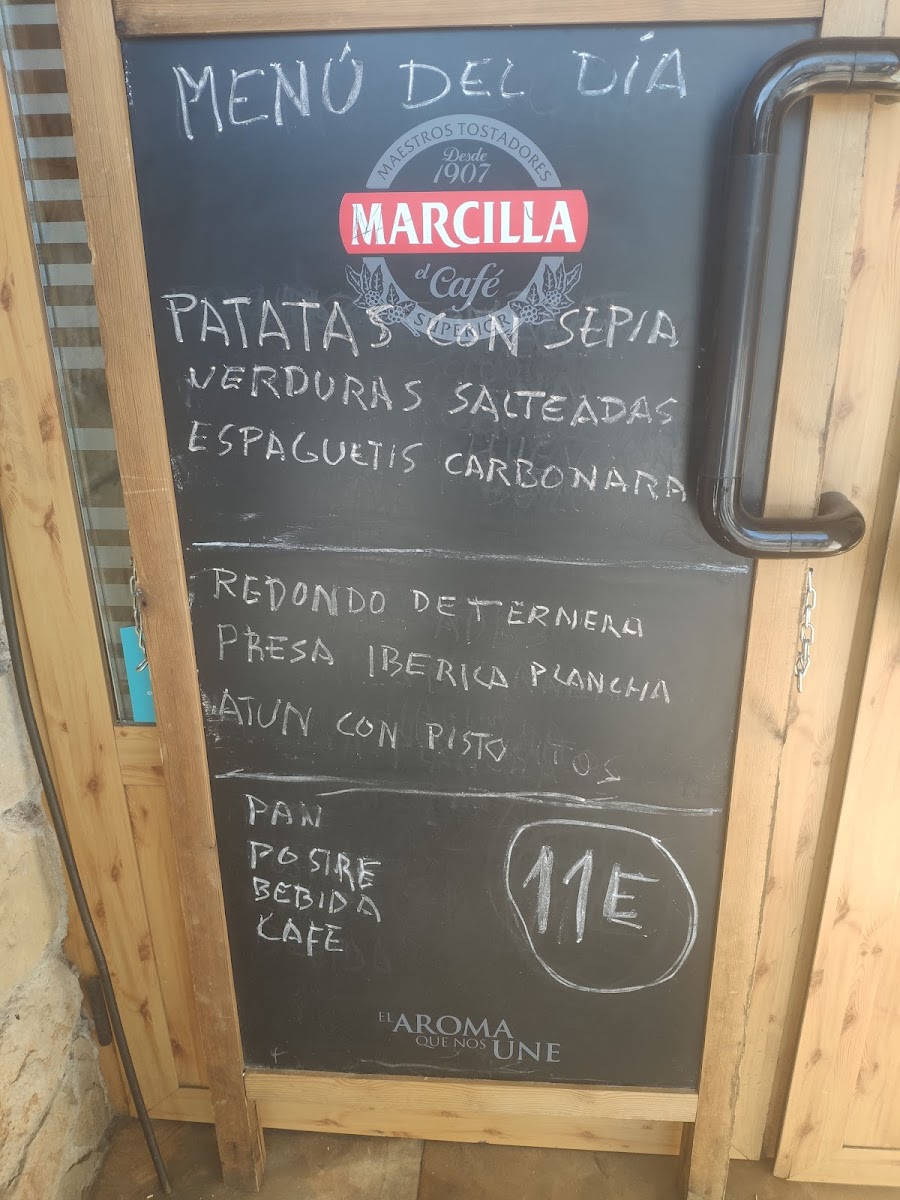 MENÚ DEL DÍA
MAESTROS TOSTADORES
Desde
1907
MARCILLA
el
Café
SUPERIOR
PATATAS CON SEPIA
VERDURAS SALTEADAS
ESPAGUETIS CARBONARA
REDONDO DE TERNERA
PRESA IBERICA PLANCHA
ATUN CON PISTO
PAN
POSTRE
BEBIDA
CAFE
11E
EL AROMA
QUE NOS UNE